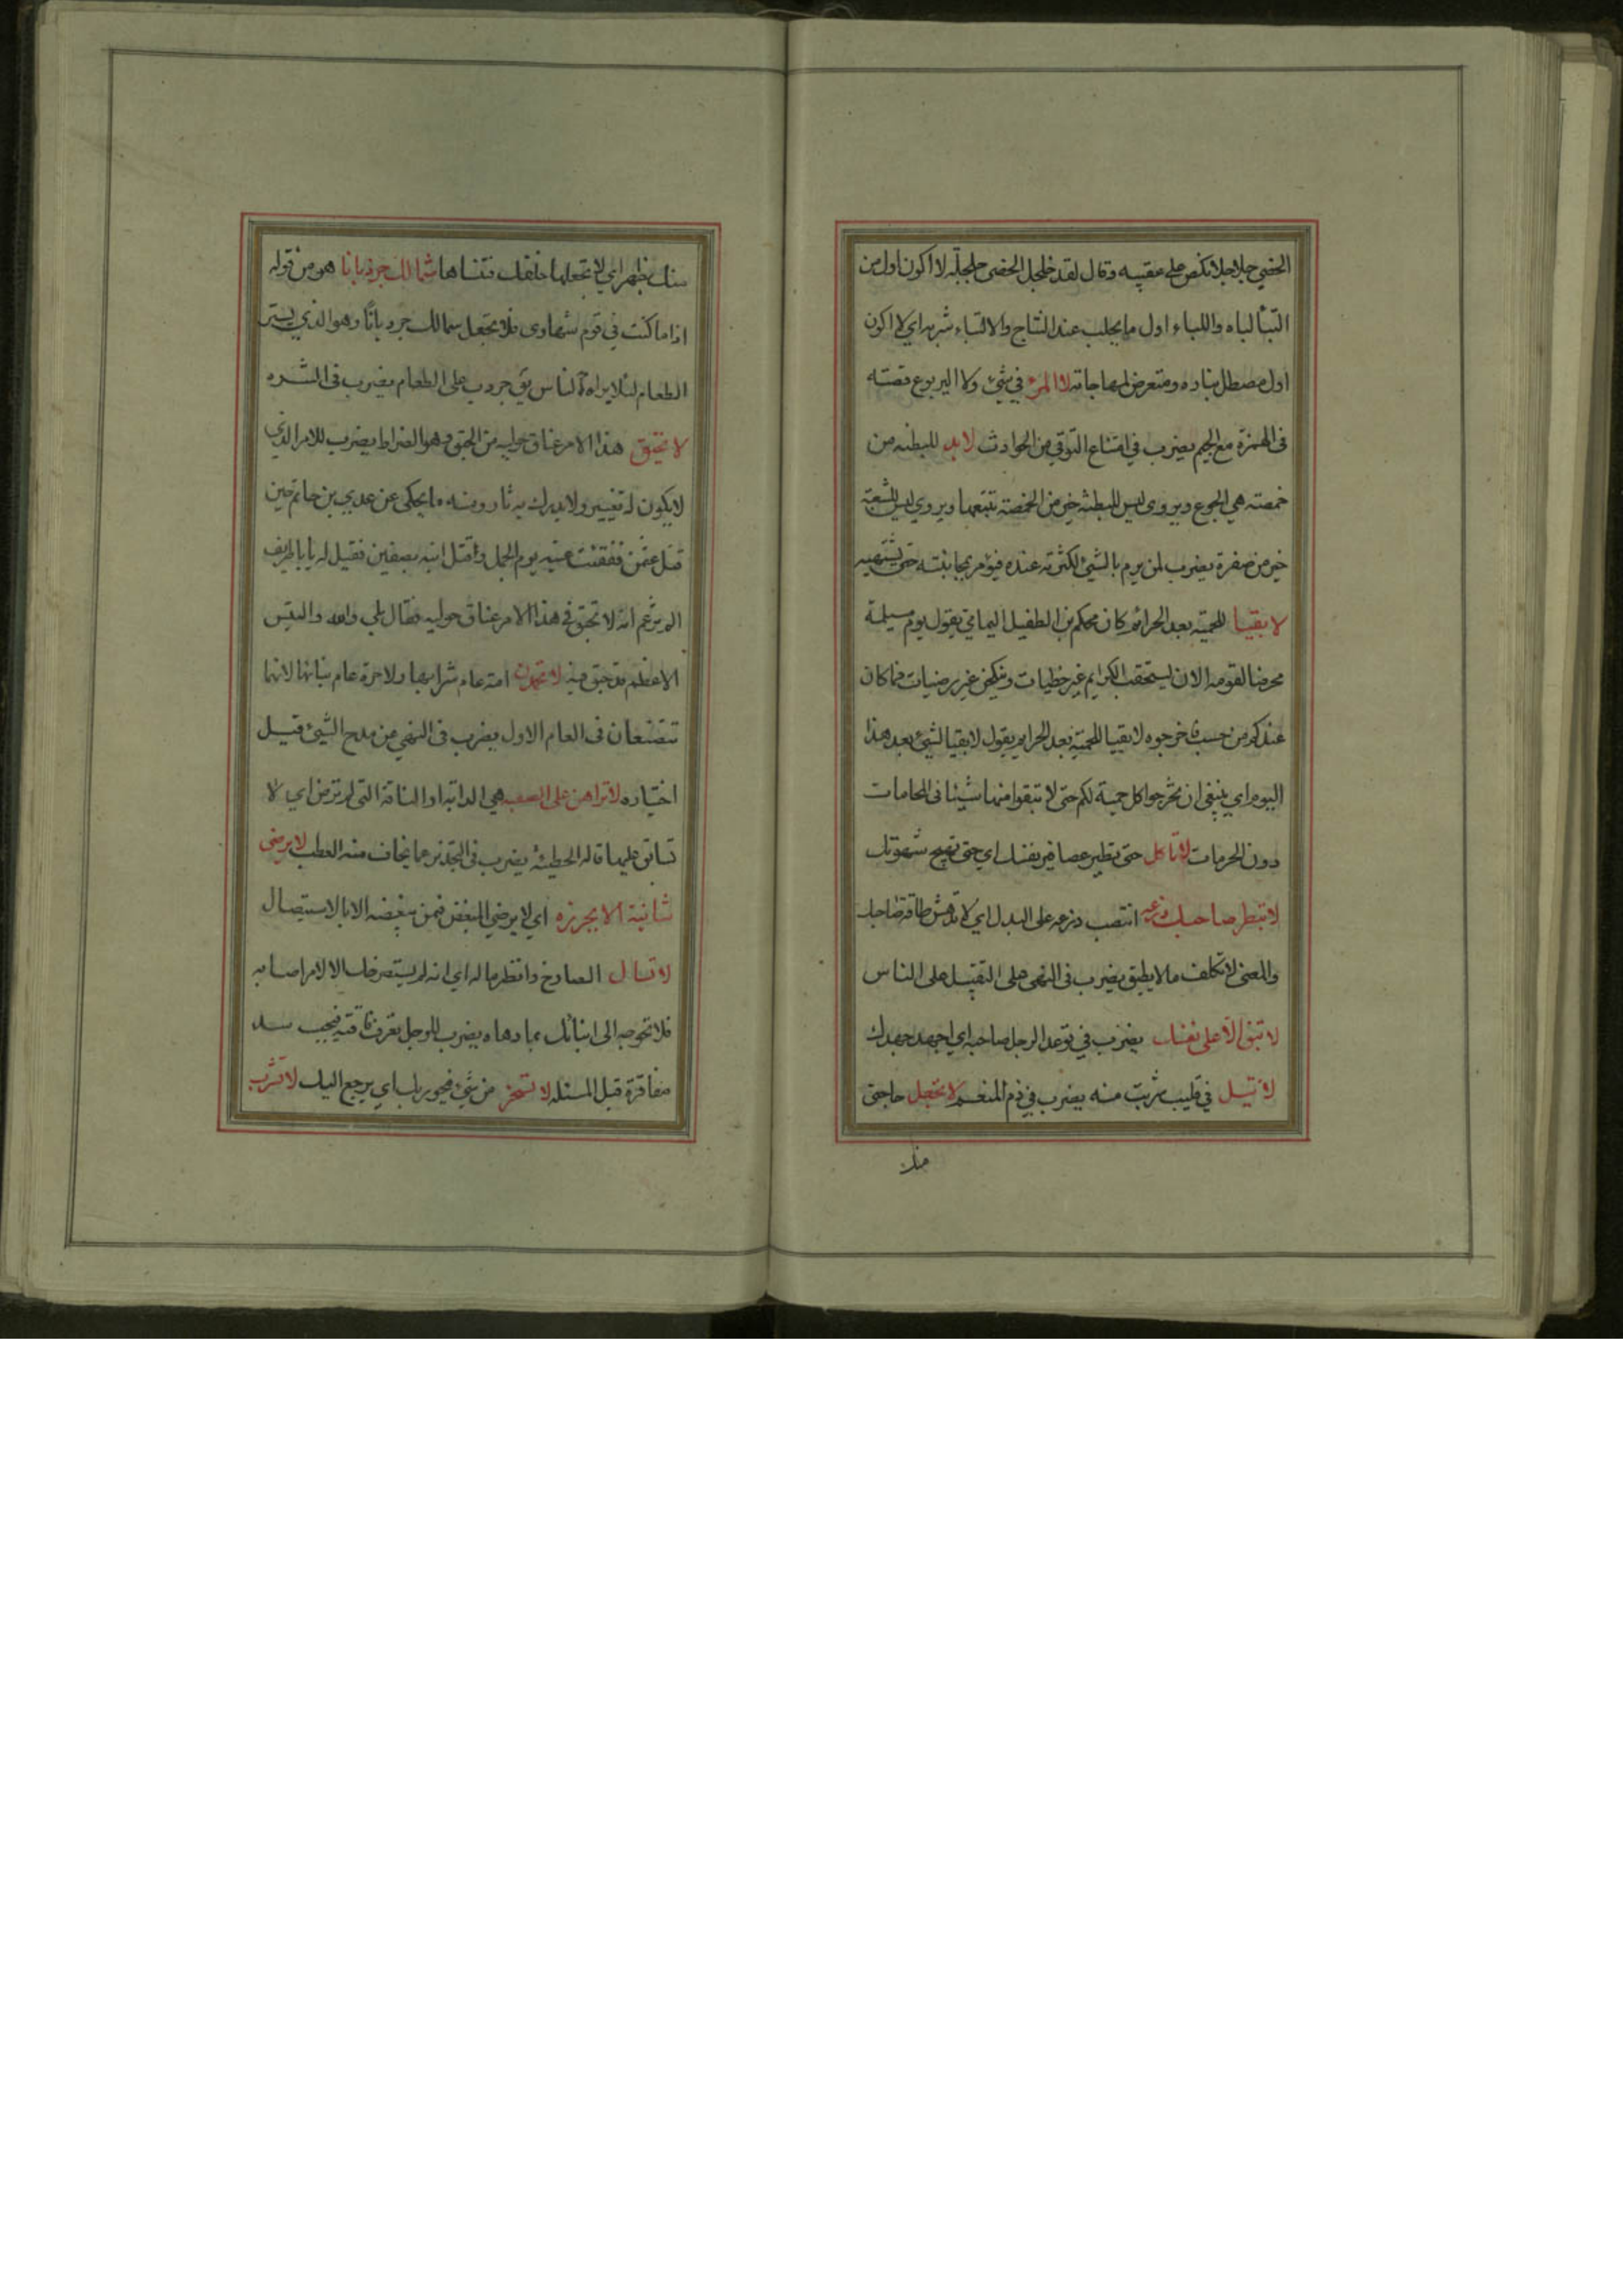 الخصي جلاجلا نكص على عقبيه وقال لقد خلجل الخصى جلجلة لا اكون اول من
التبأ لباه واللباء اول ما يحلب عند النتاج والالتباء شربه اي لا اكون
اول مصطل بناره ومتعرض لمهاجاته لا المرء في شيء ولا اليربوع قصته
فى الهمزة مع الجيم يضرب في امتناع التوقي من الحوادث لابد للبطنه من
خمصته هي الجوع ويروى ليس للبطنه خير من الخمصة تتبعها ويروي ليس للشبعة
خير من صفرة يضرب لمن يرم بالشيء لكثرته عنده فيؤمر بمجانبته حتى يشتهيه
لا بقيا للحمية بعد الحرائم كان محكم بن الطفيل اليمامي يقول يوم مسيلمة
محرضا لقومه الان تستحقب الكرايم غير حظيات وينكحن غير رضيات فما كان
عندكم من حسب فاخرجوه لا بقيا للحمية بعد الحرايم يقول لا بقيا لشيء بعد هذا
اليوم اي ينبغي ان تخرجوا كل حمية لكم حتى لا تبقوا منها شيئا فى المحامات
دون الحرمات لا تاكل حتى تطير عصافير نفسك اي حتى تهيج شهوتك
لا تبطر صاحبك ذرعه انتصب ذرعه على البدل اي لا تدهش طاقة صاحبك
والمعنى لا تكلف ما لا يطيق يضرب فى النهى على التثقيل على الناس
لا تبق الا على نفسك يضرب في توعد الرجل صاحبه اي اجهد جهدك
لا تبل في قليب شربت منه يضرب في ذم المنعم لا تجعل حاجتى
منك
منك بظهر اي لا تجعلها خلفك فتنساها شمالك جردبانا هو من قوله
اذا ما كنت في قوم شهاوى فلا تجعل شمالك جردبانا وهو الذي يستر
الطعام لئلا يراه الناس يق جردب على الطعام يضرب فى الشره
لا تحبق هذا الامر عناق حوليه من الحبق وهو الضراط يضرب للامر الذي
لا يكون له تغيير ولا يدرك به ثار ومنه ما يحكى عن عدي بن حاتم حين
قتل عثمن ففقئت عينه يوم الجمل وقتل ابنه بصفين فقيل له يا باطريف
الم تزعم انه لا تحبق في هذا الامر عناق حوليه فقال بلى والله والتيس
الاعظم قد حبق فيه لا تحمدن امة عام شرائها ولا حرة عام بنائها لانهما
تتصنعان فى العام الاول يضرب فى النهي من مدح الشيء قبل
اختياره لا تراهن على الصعبه هي الدابة او الناقة التى لم ترض اي لا
تسابق عليها قاله الحطيئة يضرب فى التحذير مما يخاف منه العطب لا يرضى
شانية الا بجرزه اي لا يرضي المبغض فمن يبغضه الا بالاستيصال
لا تسال الصارخ وانظر ما له اي انه لم يستصرخك الا لامر اصابه
فلا تحوجه الى انبائك بما دهاه يضرب للرجل تعرف فاقته فيجب سد
مفاقرة قبل المسئله لا تسخر من شيء فيحور بك اي يرجع اليك لا تشرب